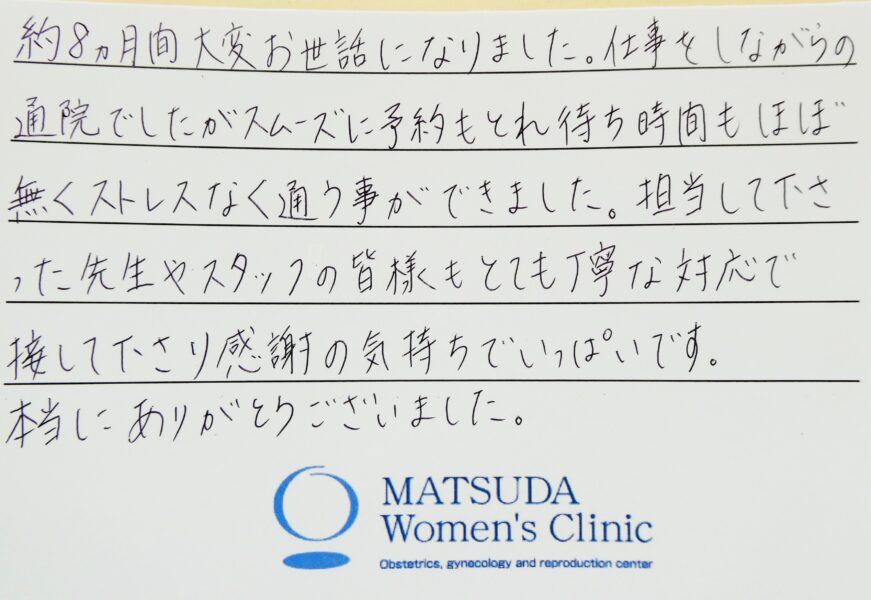 約8ヵ月間大変お世話になりました。仕事をしながらの
通院でしたがスムーズに予約もとれ待ち時間もほぼ
無くストレスなく通う事ができました。担当して下さ
った先生やスタッフの皆様もとても丁寧な対応で
接して下さり感謝の気持ちでいっぱいです。
本当にありがとうございました。
MATSUDA
Women's Clinic
Obstetrics, gynecology and reproduction center